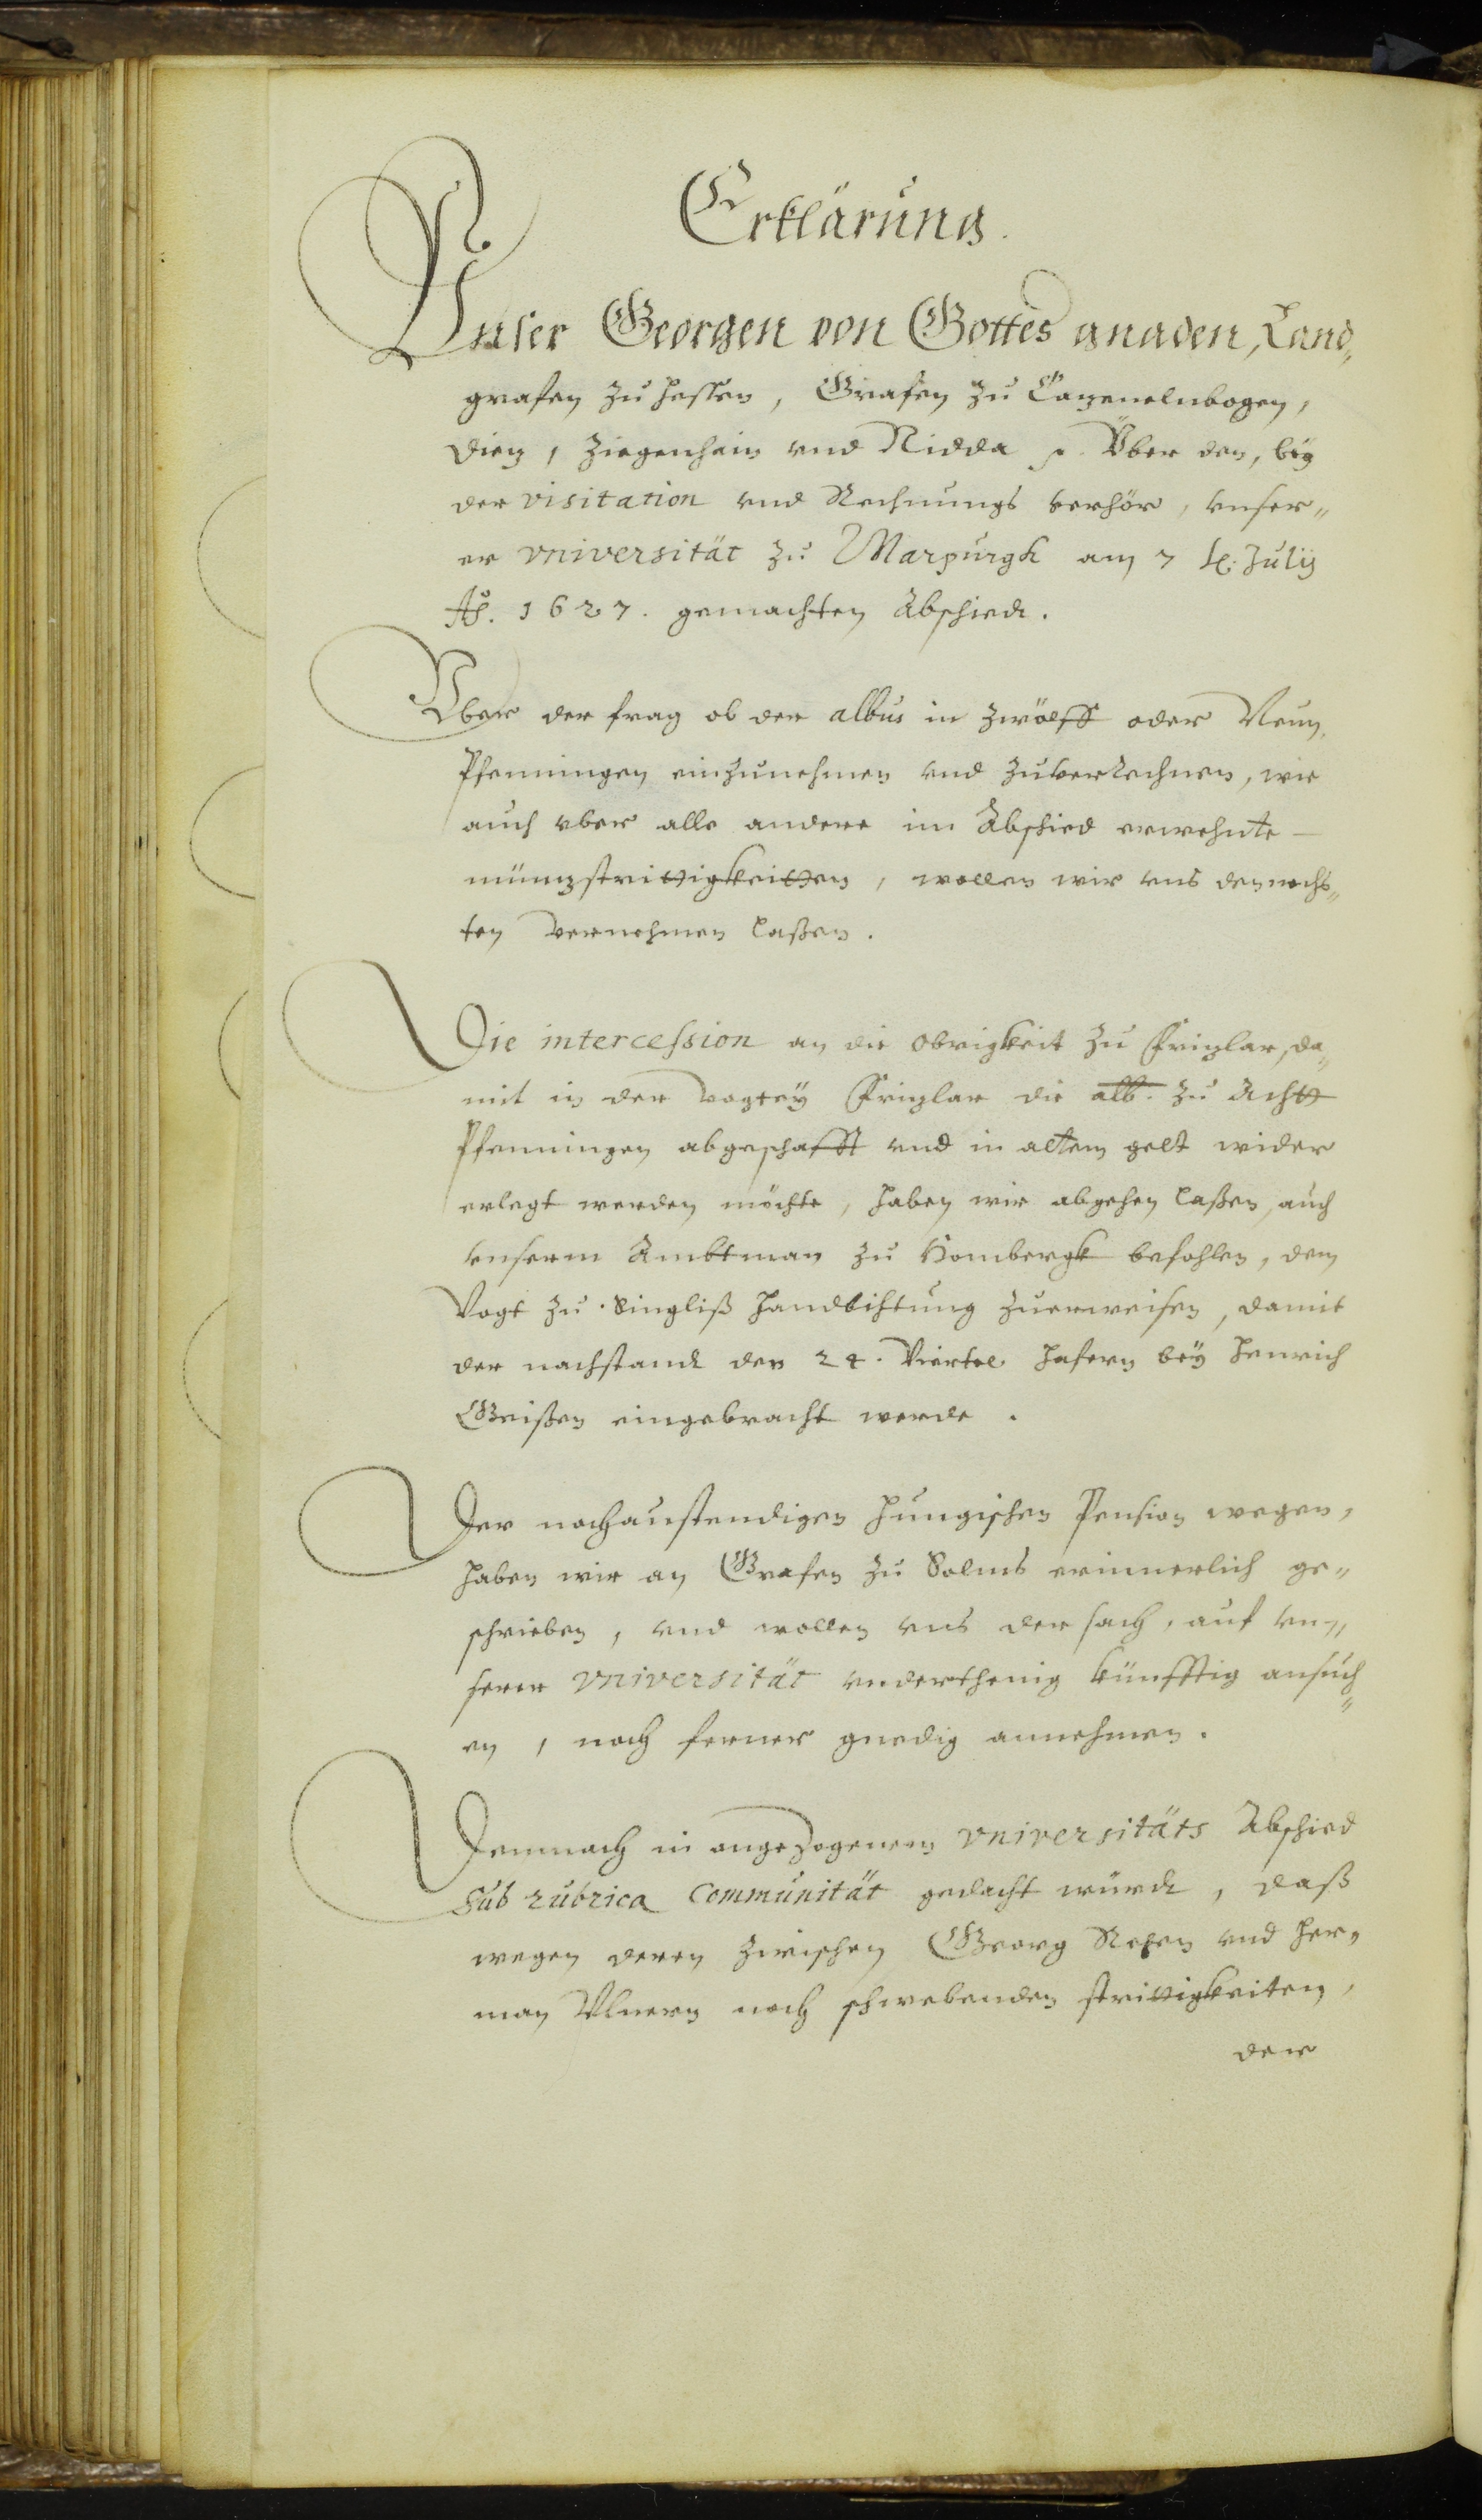 Erklärung.
Vnser Georgen von Gottes gnaden, Land„
grafen zu Hessen, Grafen zu Cazenelnbogen,
Diez, Ziegenhain vnd Nidda p. Vber den, bey
der visitation vnd Rechnungs verhör, vnser„
er vniversität zu Marpurgk am 7 t. Julij
Ao. 1627. gemachten Abschiedt.
Vber der frag ob der albus in zwölff oder Neun
Pfenningen einzunehmen vnd zuverrechnen, wie
auch vber alle andere im Abschied erwehnte
münzstrittigkeitten, wollen wir vns dem nechs„
ten vernehmen laßen.
Die intercession an die Obrigkeit zu Frizlar, da„
mit in der Vogtey Frizlar die alb. zu Acht
Pfenningen abgeschafft vnd in altem gelt wider
erlegt werden möchte, haben wir abgehen laßen, auch
vnserm Ambtman zu Hombergk befohlen, dem
Vogt zu Singliß handbihtung zuerweisen, damit
der nachstandt der 24. Viertel Hafern bey Henrich
Geißen eingebracht werde.
Der nochaustendigen Hungischen Pension wegen,
haben wir an Grafen zu Solms erinnerlich ge„
schrieben, vnd wollen vns der sach, auf vn„
serer vniversität vnderthenig künfftig ansuch„
en, noch ferner gnedig annehmen.
Demnach in angezogenem vniversitäts Abschied
sub rubrica Communität gedacht würdt, daß
wegen deren zwischen Georg und Her„
man Vlnern noch schwebenden strittigkeiten,
der